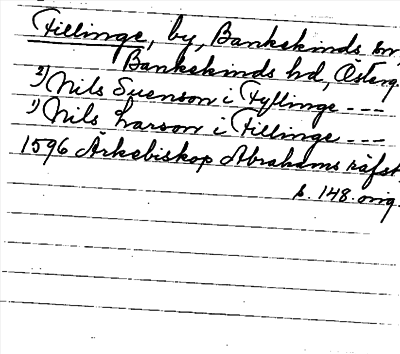 Fillinge, by, Bankekinds sn,
Bankekinds hd, Österg.
2) Nils Suenson i Fyllinge ---
1) Nils Larson i Fillinge ---
1596 Ärkebiskop Abrahams räfst,
s. 148. orig.